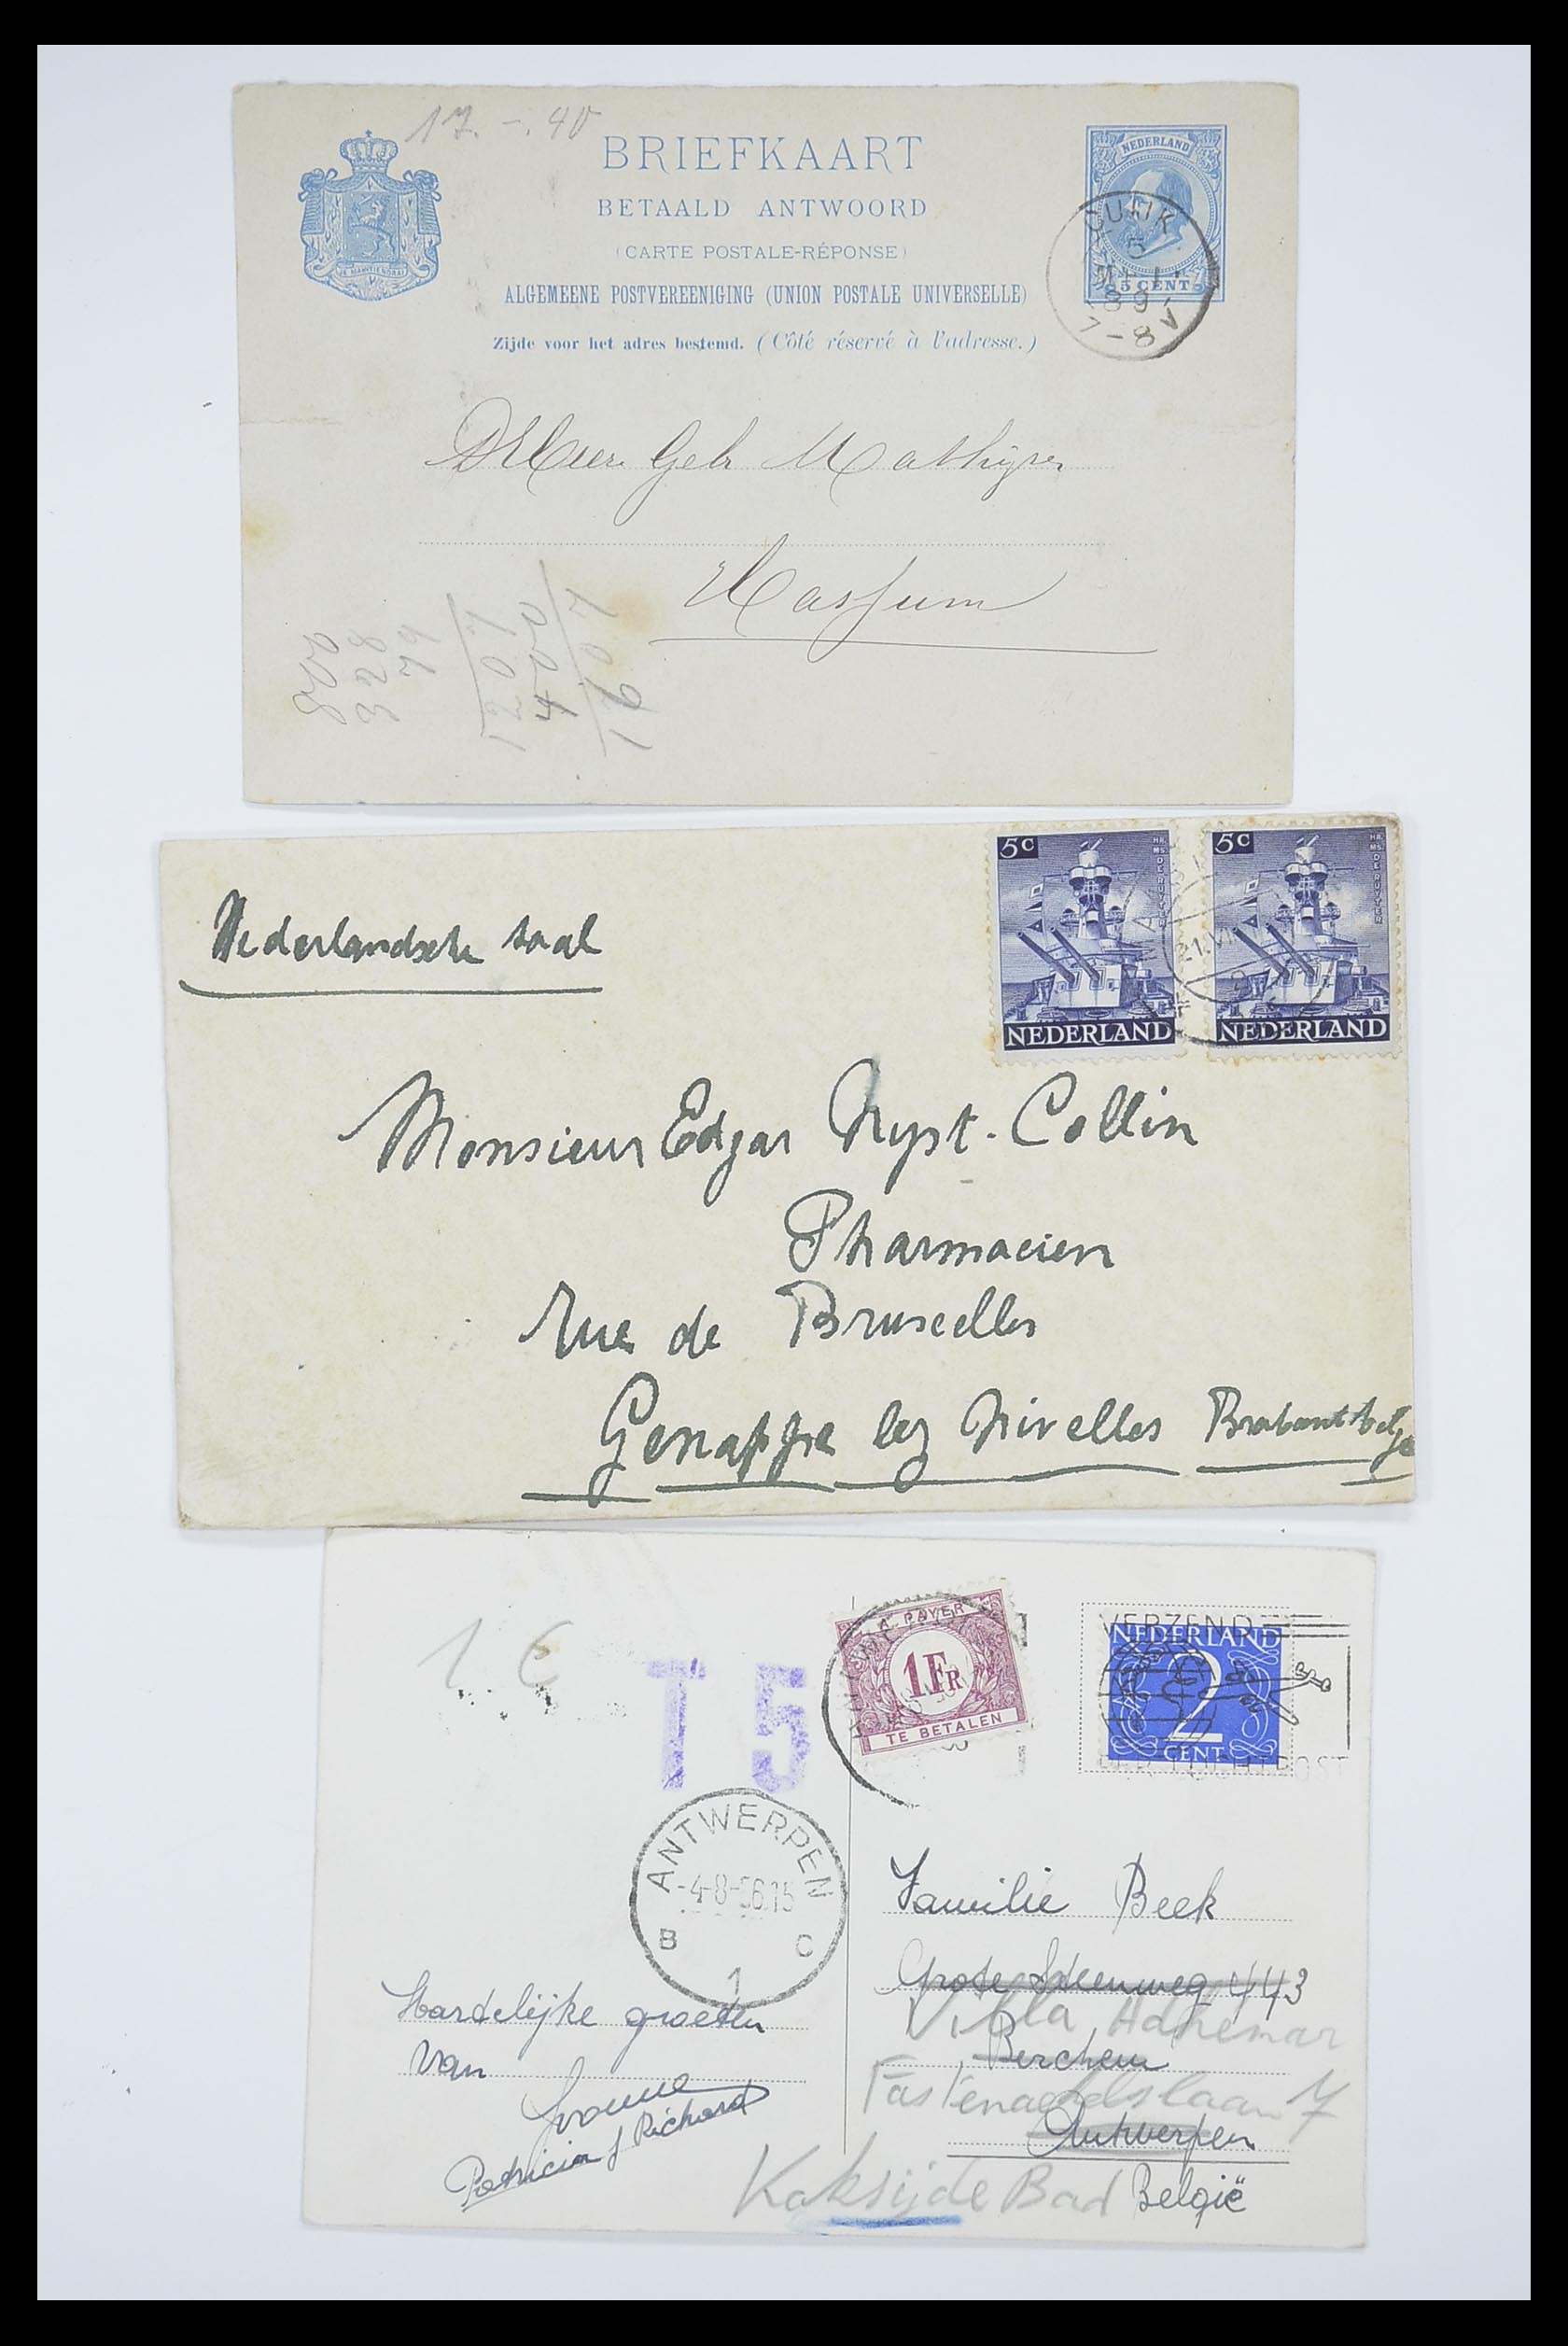 17.-.40
BRIEFKAART
BETAALD ANTWOORD
(CARTE POSTALE-RÉPONSE)
ALGEMEENE POSTVEREENIGING (UNION POSTALE UNIVERSELLE)
Zijde voor het adres bestemd. (Côté réservé à l'adresse.)
JE MAINTIENDRAI
NEDERLAND
5 CENT
CUIJK
5
MEI
89
7-8V
Gebr Mathijsen
800
328
79
1207
400
1607
Nederlandsche taal
5c
HR. MS. DE RUYTER
NEDERLAND
5c
HR. MS. DE RUYTER
NEDERLAND
Monsieur Edgar Nyst-Collin
Pharmacien
Rue de Bruxelles
Genappe lez Nivelles Brabant belge
1 €
T 5
A PAYER
1 FR
TE BETALEN
VERZEND
NEDERLAND
2
CENT
PER LUCHTPOST
ANTWERPEN
-4-8-56.15
B C
1
Hartelijke groeten
van
Yvonne
Patricia & Richard
Familie Beek
Grote Steenweg 443
Villa Adhemar
Berchem
Fastenaedslaan 7
Antwerpen
Koksijde Bad België